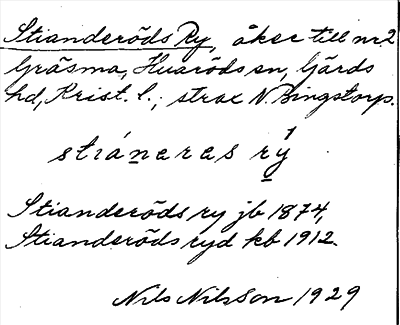 Stianderöds Ry, åker till nr 2
Gräsma, Huaröds sn, Gärds
hd, Krist. l.; strax N. Bingstorp.
stianeres rý
Stianderöds ry jb 1874,
Stianderöds ryd kb 1912.
Nils Nilsson 1929